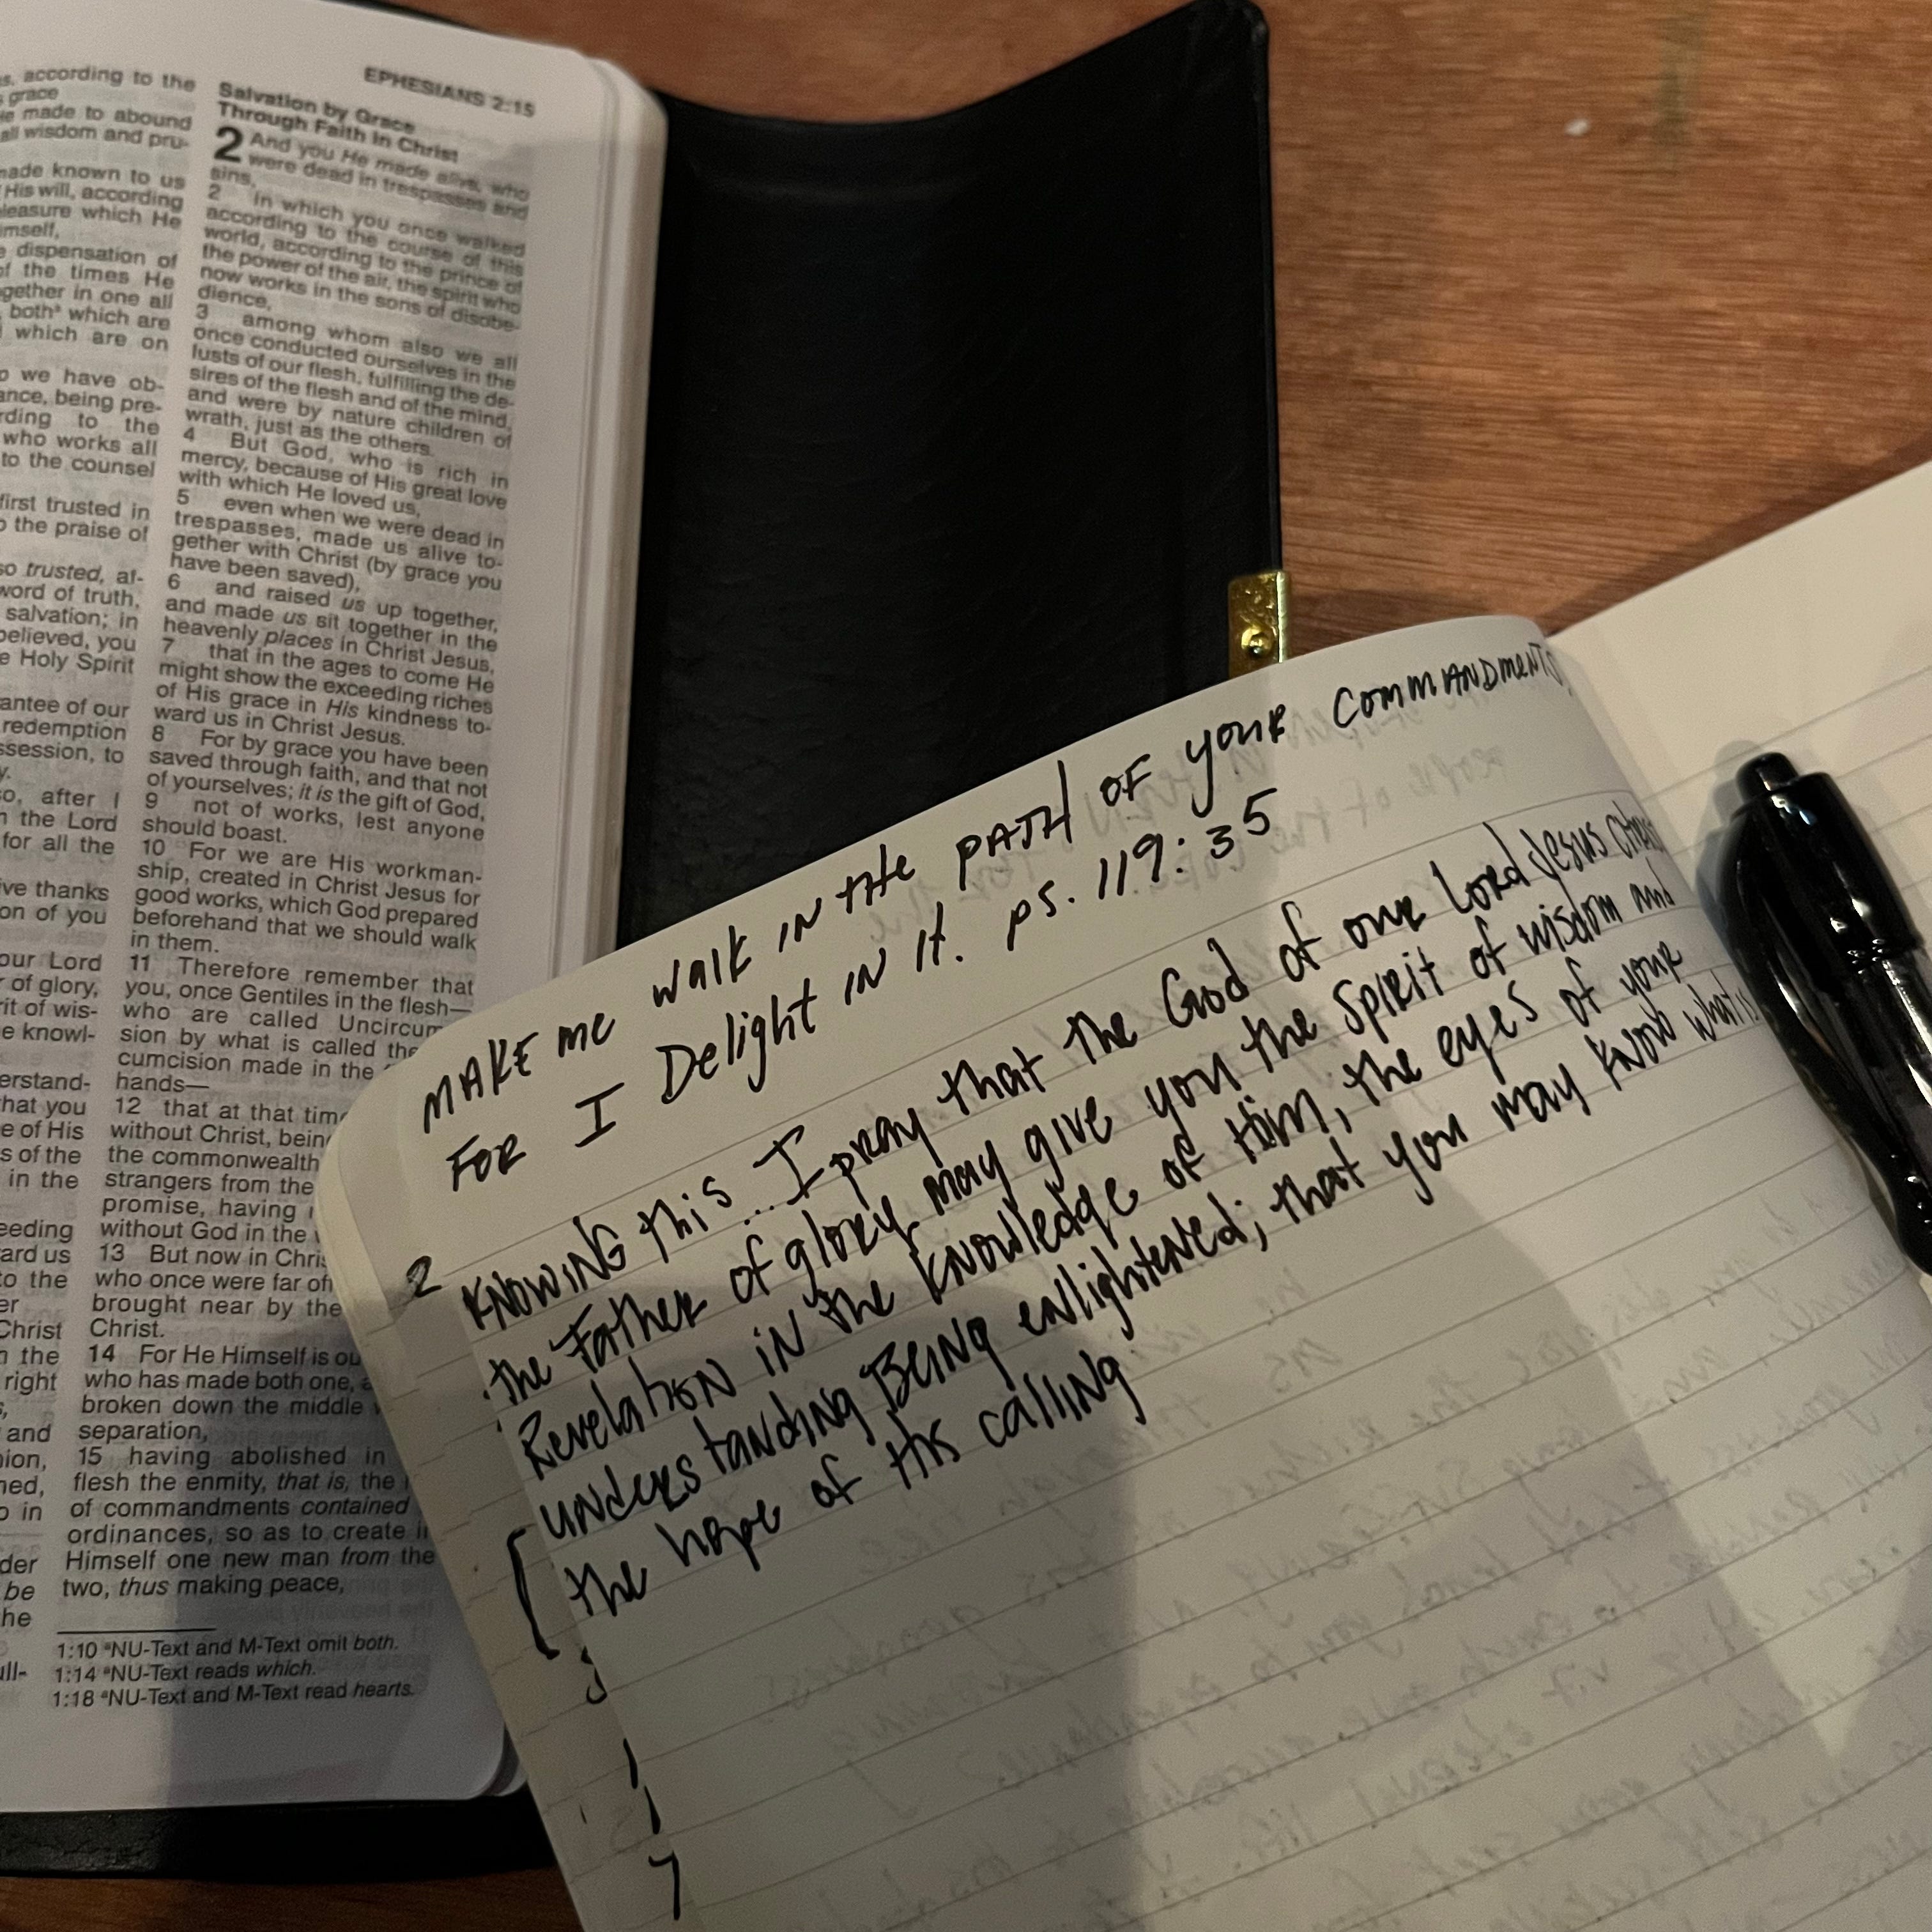 s, according to the
grace
He made to abound
all wisdom and pru-
made known to us
His will, according
pleasure which He
imself,
e dispensation of
of the times He
gether in one all
both which are
which are on
we have ob-
ance, being pre-
rding to the
who works all
to the counsel
first trusted in
the praise of
so trusted, af-
word of truth,
salvation; in
believed, you
e Holy Spirit
antee of our
redemption
ssession, to
y.
so, after I
n the Lord
for all the
ive thanks
on of you
our Lord
r of glory,
rit of wis-
e knowl-
erstand-
hat you
e of His
s of the
in the
eeding
ard us
to the
er
Christ
n the
right
s,
and
nion,
ned,
o in
der
be
he
ull-
EPHESIANS 2:15
Salvation by Grace
Through Faith in Christ
2 And you He made alive, who
were dead in trespasses and
sins,
2 in which you once walked
according to the course of this
world, according to the prince of
the power of the air, the spirit who
now works in the sons of disobe-
dience,
3 among whom also we all
once conducted ourselves in the
lusts of our flesh, fulfilling the de-
sires of the flesh and of the mind,
and were by nature children of
wrath, just as the others.
4 But God, who is rich in
mercy, because of His great love
with which He loved us,
5 even when we were dead in
trespasses, made us alive to-
gether with Christ (by grace you
have been saved),
6 and raised us up together,
and made us sit together in the
heavenly places in Christ Jesus,
7 that in the ages to come He
might show the exceeding riches
of His grace in His kindness to-
ward us in Christ Jesus.
8 For by grace you have been
saved through faith, and that not
of yourselves; it is the gift of God,
9 not of works, lest anyone
should boast.
10 For we are His workman-
ship, created in Christ Jesus for
good works, which God prepared
beforehand that we should walk
in them.
11 Therefore remember that
you, once Gentiles in the flesh—
who are called Uncircum
sion by what is called the
cumcision made in the
hands—
12 that at that time
without Christ, being
the commonwealth
strangers from the
promise, having
without God in the
13 But now in Chris
who once were far off
brought near by the
Christ.
14 For He Himself is ou
who has made both one, a
broken down the middle
separation,
15 having abolished in
flesh the enmity, that is, the
of commandments contained
ordinances, so as to create i
Himself one new man from the
two, thus making peace,
1:10 ᵃNU-Text and M-Text omit both.
1:14 ᵃNU-Text reads which.
1:18 ᵃNU-Text and M-Text read hearts.
MAKE me walk IN the PATH OF your COMMANDMENTS,
FOR I Delight IN It. ps. 119:35
2 KNOWING this... I pray that the God of our Lord Jesus Christ
the Father of glory may give you the Spirit of wisdom and
Revelation in the knowledge of Him, the eyes of your
understanding Being enlightened; that you may know what is
the hope of His calling